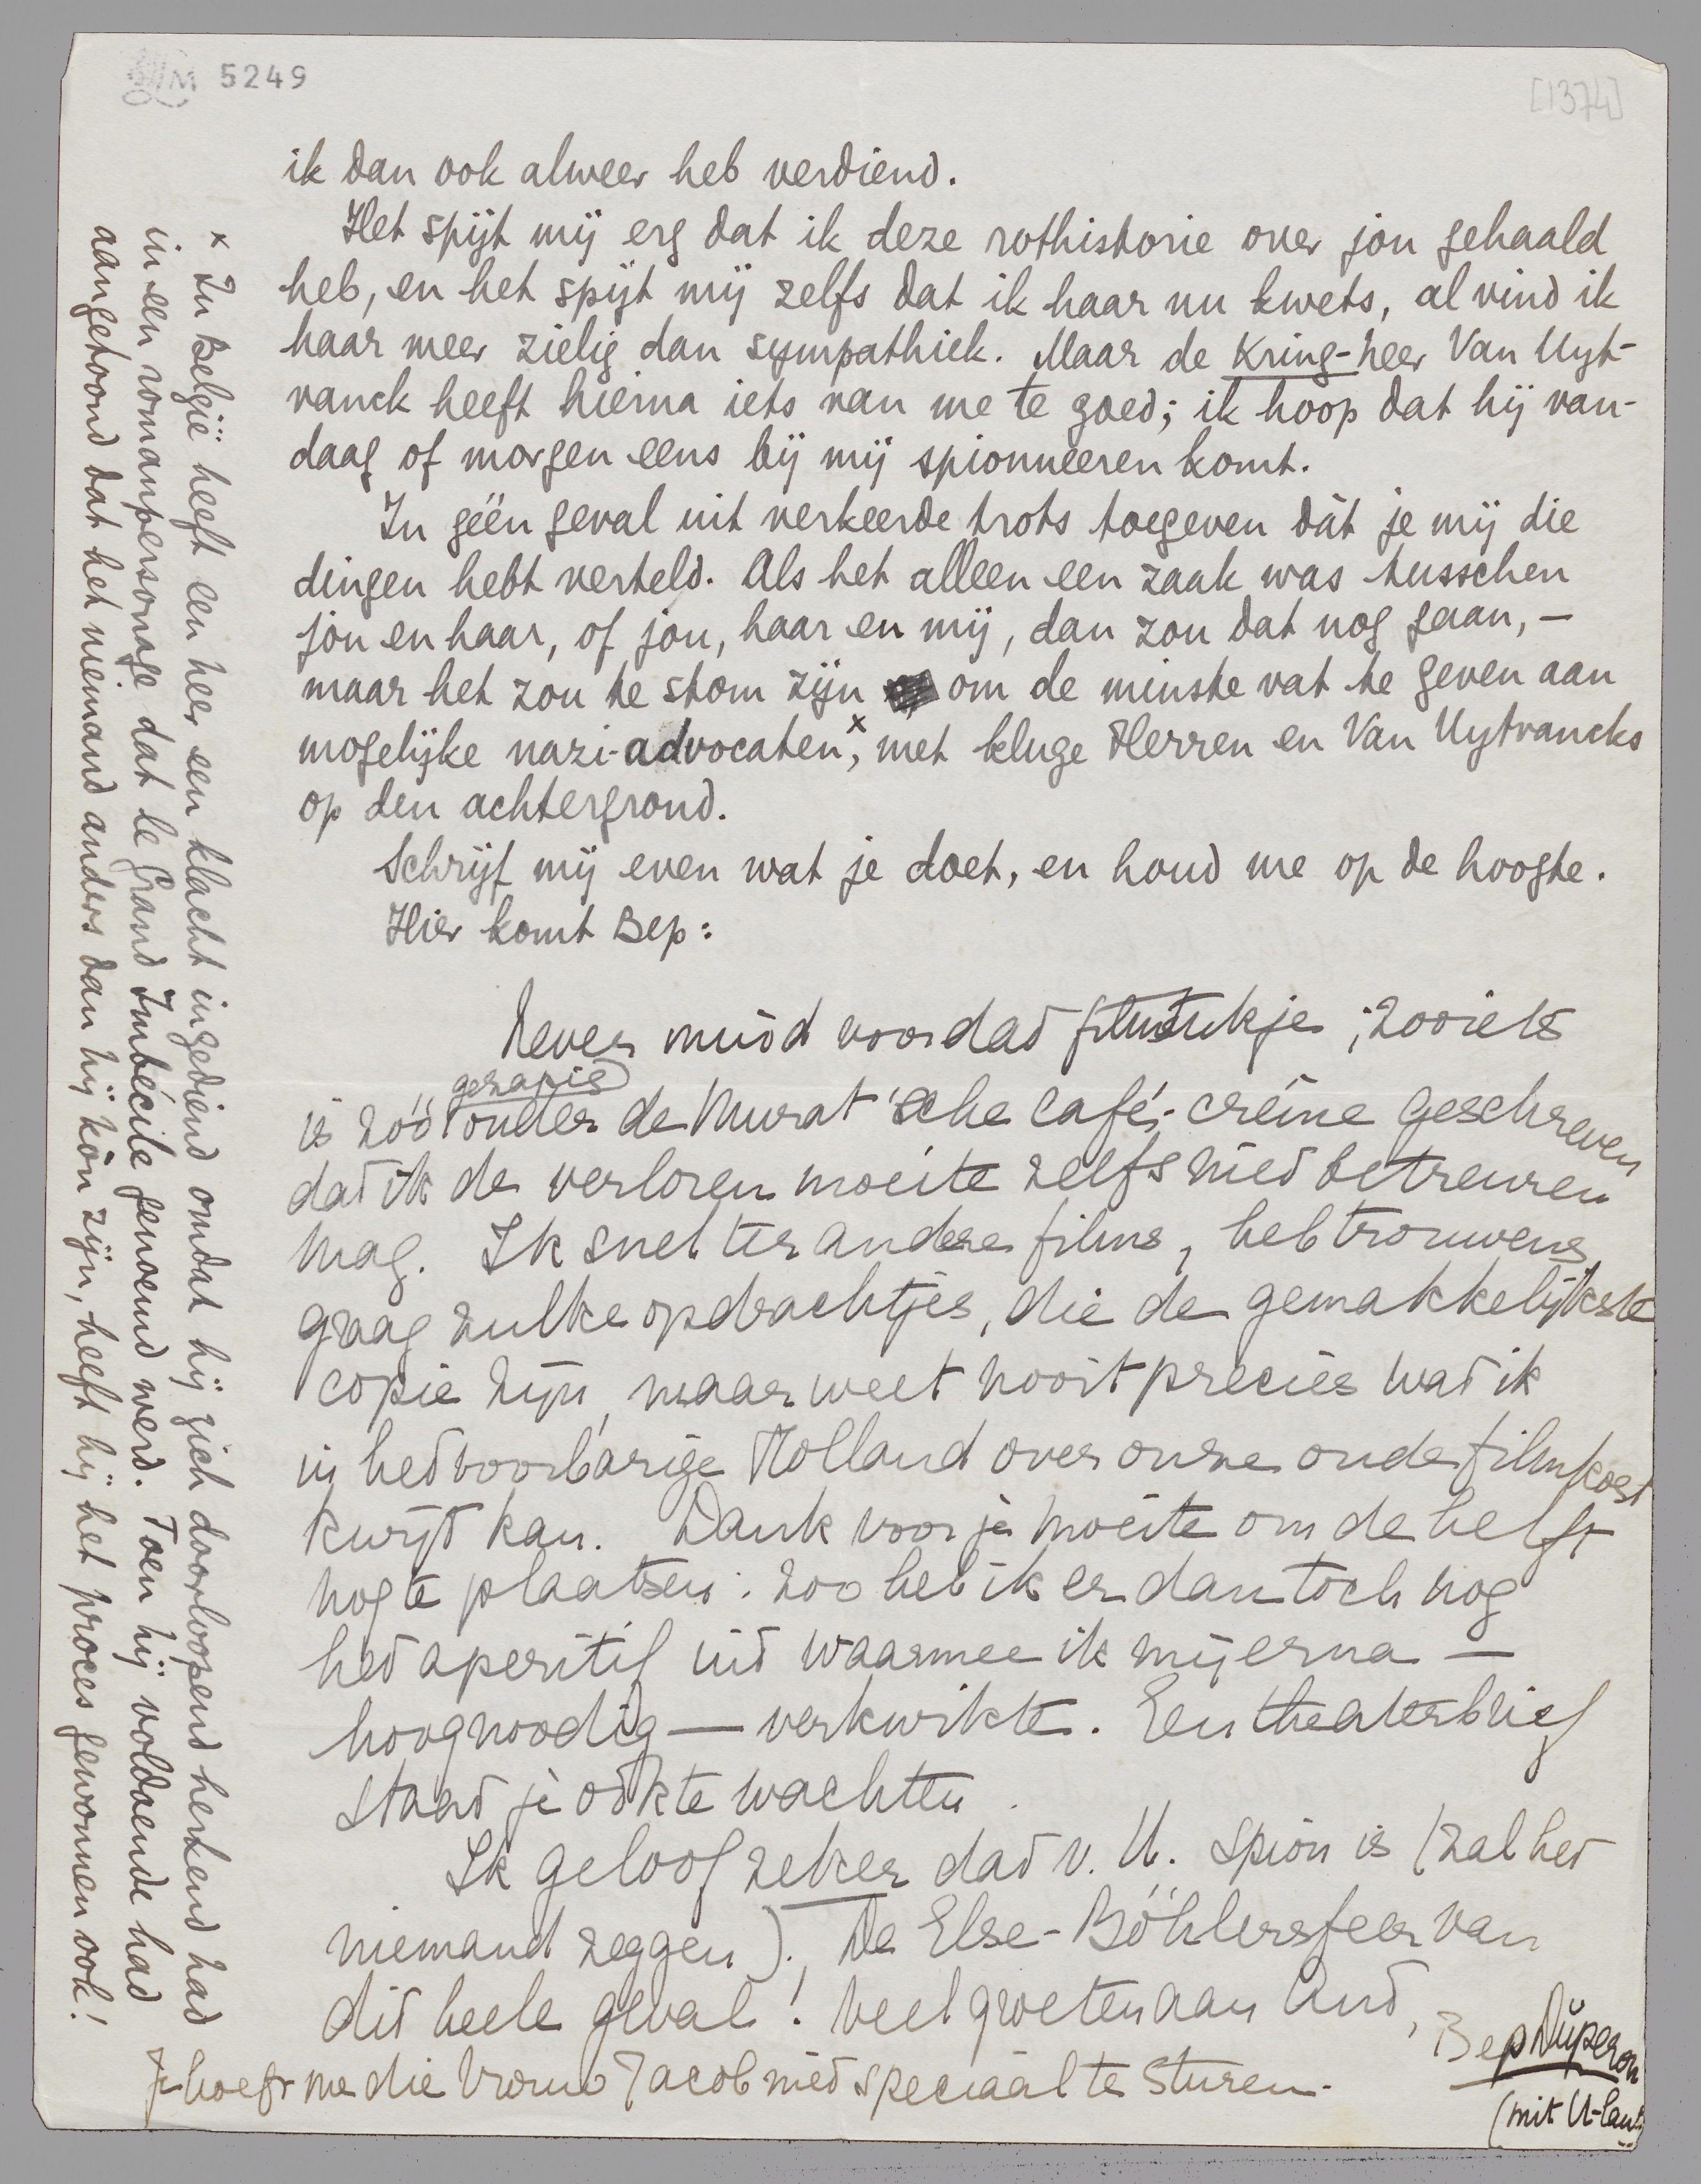 LM 5249
[1374]
ik dan ook alweer heb verdiend.
Het spijt mij erg dat ik deze rothistorie over jou gehaald
heb, en het spijt mij zelfs dat ik haar nu kwets, al vind ik
haar meer zielig dan sympathiek. Maar de Kring-heer Van Uyt-
vanck heeft hierna iets van me te goed; ik hoop dat hij van-
daag of morgen eens bij mij spionneeren komt.
In géén geval uit verkeerde trots toegeven dàt je mij die
dingen hebt verteld. Als het alleen een zaak was tusschen
jou en haar, of jou, haar en mij, dan zou dat nog gaan, –
maar het zou te stom zijn om de minste vat te geven aan
mogelijke nazi-advocaten,x met kluge Herren en Van Uytvancks
op den achtergrond.
Schrijf mij even wat je doet, en houd me op de hoogte.
Hier komt Bep:
Never mind voor dat filmstukje; zooiets
is zóó geraffineerd onder de Murat'sche café-crème geschreven
dat ik de verloren moeite zelfs niet betreuren
mag. Ik snel ter andere films, heb trouwens
graag zulke opdrachtjes, die de gemakkelijkste
copie zijn, maar weet nooit precies wat ik
in het voorbarige Holland over onze oude filmkost
kwijt kan. Dank voor je moeite om de helft
nog te plaatsen: zoo heb ik er dan toch nog
het aperitif uit waarmee ik mij erna —
hoognoodig — verkwikte. Een theaterbrief
staat je óók te wachten.
Ik geloof zeker dat v. U. spion is (zal het
niemand zeggen). De Else-Böhlersfeer van
dit heele geval! Veel groeten aan And,
Bep Dŭperon
(mit U-laut)
Je hoeft me die Vrouw Jacob niet speciaal te sturen.
x In België heeft een heer een klacht ingediend omdat hij zich doorloopend herkend had
in een romanpersonage dat le Grand Imbécile genoemd werd. Toen hij voldoende had
aangetoond dat het niemand anders dan hij kòn zijn, heeft hij het proces gewonnen ook!